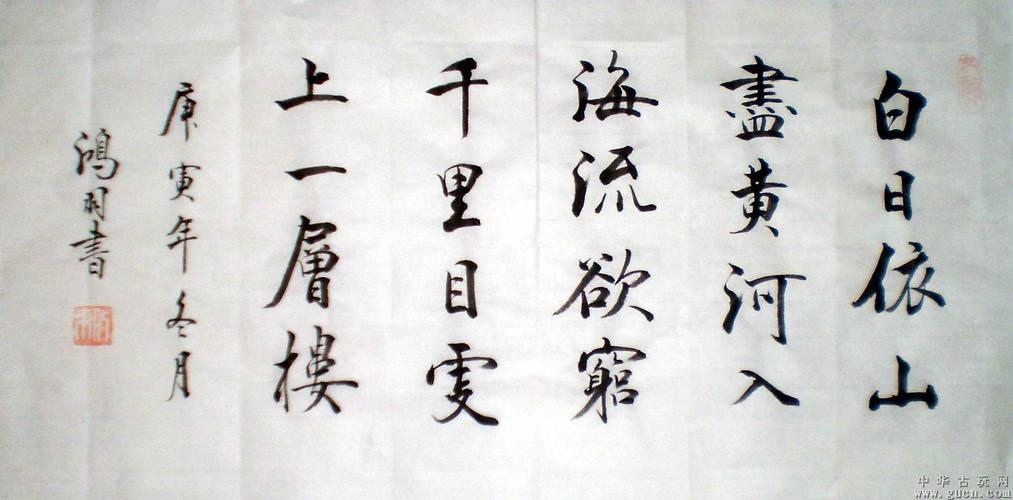 白日依山
盡黄河入
海流欲窮
千里目更
上一層樓
庚寅年冬月
鴻書
中华古玩网
www.gucn.com